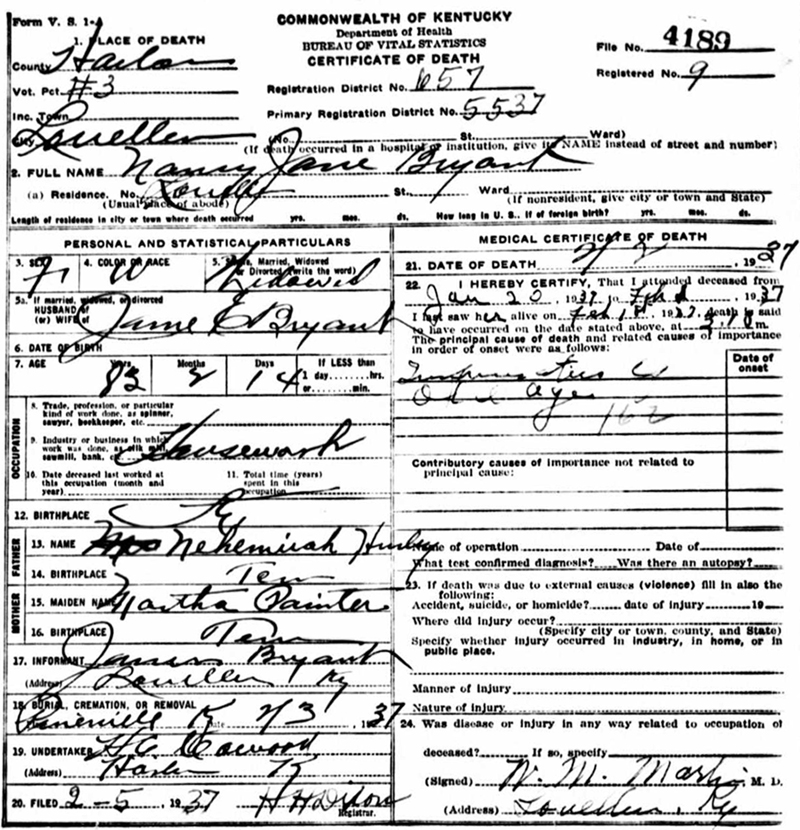 Form V. S. 1-A
COMMONWEALTH OF KENTUCKY
Department of Health
BUREAU OF VITAL STATISTICS
CERTIFICATE OF DEATH
File No. 4189
Registered No. 9
1. PLACE OF DEATH
County Harlan
Vot. Pct. #3
Inc. Town
City Louellen
Registration District No. 657
Primary Registration District No. 5537
(No. St. Ward)
(If death occurred in a hospital or institution, give its NAME instead of street and number)
2. FULL NAME Nancy Jane Bryant
(a) Residence. No. Louellen St. Ward
(Usual place of abode) (If nonresident, give city or town and State)
Length of residence in city or town where death occurred yrs. mos. ds. How long in U. S., if of foreign birth? yrs. mos. ds.
PERSONAL AND STATISTICAL PARTICULARS
3. SEX F 4. COLOR OR RACE W 5. Single, Married, Widowed or Divorced (write the word) Widowed
5a. If married, widowed, or divorced
HUSBAND of
(or) WIFE of Jame E Bryant
6. DATE OF BIRTH
7. AGE Years Months Days If LESS than
1 day......hrs.
or......min.
83 2 14
OCCUPATION
8. Trade, profession, or particular
kind of work done, as spinner,
sawyer, bookkeeper, etc.
9. Industry or business in which
work was done, as silk mill,
sawmill, bank, etc. Housework
10. Date deceased last worked at
this occupation (month and
year)
11. Total time (years)
spent in this
occupation
12. BIRTHPLACE Ky
FATHER
13. NAME Nehemiah Hurley
14. BIRTHPLACE Tenn
MOTHER
15. MAIDEN NAME Martha Painter
16. BIRTHPLACE Tenn
17. INFORMANT James Bryant
(Address) Louellen Ky
18. BURIAL, CREMATION, OR REMOVAL
Pineville K Date 2/3 1937
19. UNDERTAKER H C Cawood
(Address) Harlan K
20. FILED 2-5 1937 H H Dixon
Registrar.
MEDICAL CERTIFICATE OF DEATH
21. DATE OF DEATH 2/2, 1937
22. I HEREBY CERTIFY, That I attended deceased from
Jan 20 1937 to Feb 2, 1937
I last saw her alive on Feb 1st 1937, death is said
to have occurred on the date stated above, at m.
The principal cause of death and related causes of importance
in order of onset were as follows:
Date of
onset
Old Age
162
Contributory causes of importance not related to
principal cause:
Name of operation Date of
What test confirmed diagnosis? Was there an autopsy?
23. If death was due to external causes (violence) fill in also the
following:
Accident, suicide, or homicide? date of injury 19
Where did injury occur?
(Specify city or town, county, and State)
Specify whether injury occurred in industry, in home, or in
public place.
Manner of injury
Nature of injury
24. Was disease or injury in any way related to occupation of
deceased? If so, specify
(Signed) W. M. Martin M. D.
(Address) Louellen, Ky